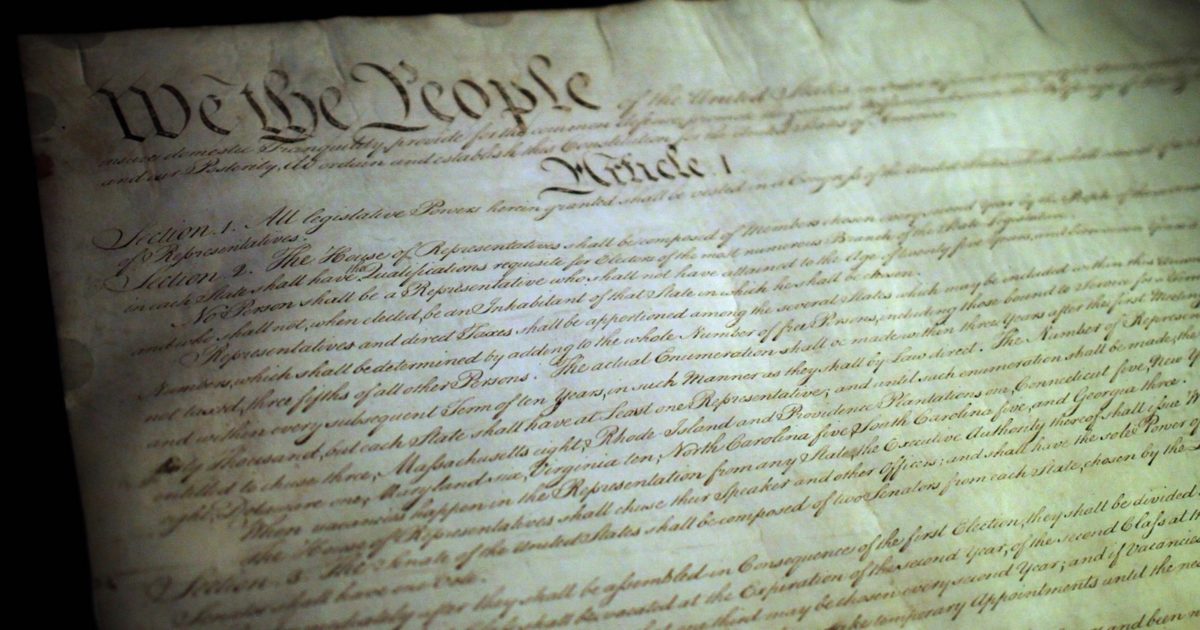 We the People of the United States
insure domestic Tranquility, provide for the common defence,
and our Posterity, do ordain and establish this Constitution for the United States of America.
Article I.
Section 1. All legislative Powers herein granted shall be vested in a Congress of the United States which shall consist of
of Representatives.
Section 2. The House of Representatives shall be composed of Members chosen every second Year by the People of the several
in each State shall have the Qualifications requisite for Electors of the most numerous Branch of the State Legislature.
No Person shall be a Representative who shall not have attained to the Age of twenty five Years, and been seven Years
and who shall not, when elected, be an Inhabitant of that State in which he shall be chosen.
Representatives and direct Taxes shall be apportioned among the several States which may be included within this Union
Numbers, which shall be determined by adding to the whole Number of free Persons, including those bound to Service for a Term
not taxed, three fifths of all other Persons. The actual Enumeration shall be made within three Years after the first Meeting
and within every subsequent Term of ten Years, in such Manner as they shall by Law direct. The Number of Represen
thirty Thousand, but each State shall have at Least one Representative; and until such enumeration shall be made, the
entitled to chuse three, Massachusetts eight, Rhode Island and Providence Plantations one, Connecticut five, New
eight, Delaware one, Maryland six, Virginia ten, North Carolina five, South Carolina five, and Georgia three.
When vacancies happen in the Representation from any State, the Executive Authority thereof shall issue
The House of Representatives shall chuse their Speaker and other Officers; and shall have the sole Power of
Section. 3. The Senate of the United States shall be composed of two Senators from each State, chosen by the
Senator shall have one Vote.
Immediately after they shall be assembled in Consequence of the first Election, they shall be divided
shall be vacated at the Expiration of the second Year, of the second Class at
one third may be chosen every second Year; and if Vacancies
make temporary Appointments until the ne
and been